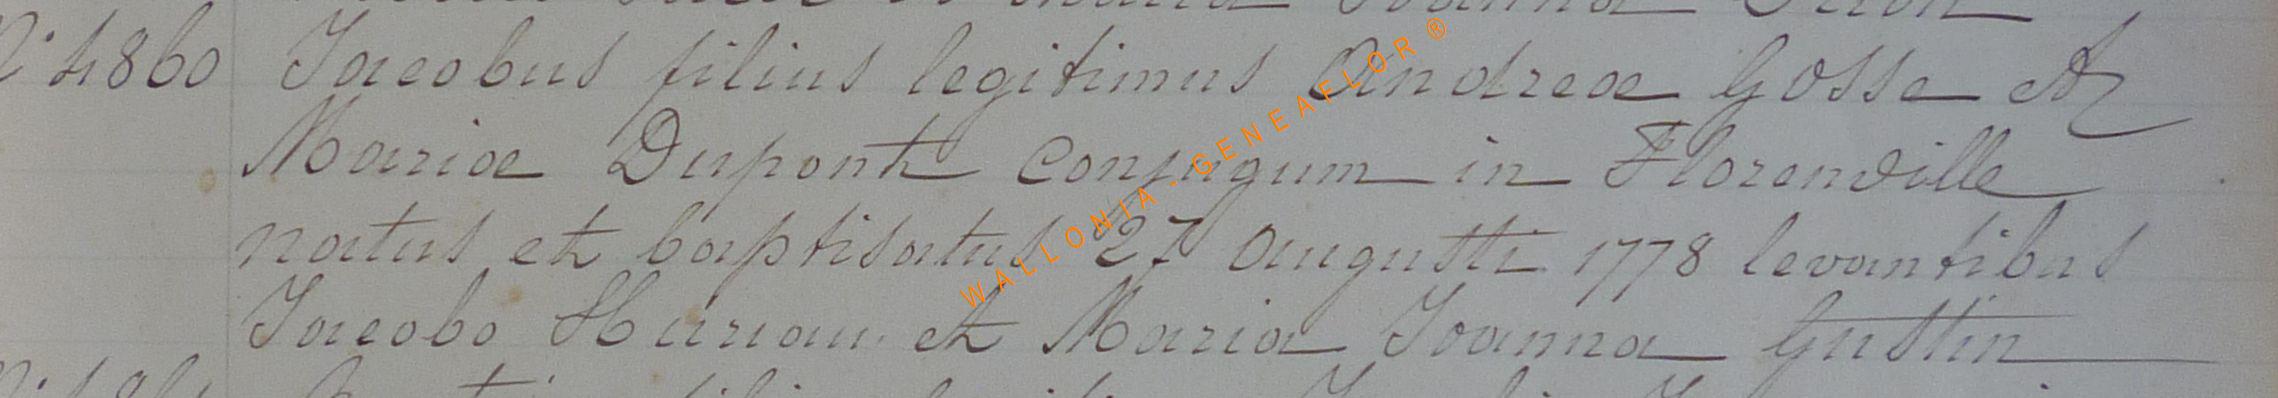 N° 4860 Jacobus filius legitimus Andreæ Gosse et
Mariæ Dupont conjugum in Florenville
natus et baptisatus 27 augusti 1778 levantibus
Jacobo Huriau et Maria Joanna Gustin
WALLONIA-GENEAFLOR®